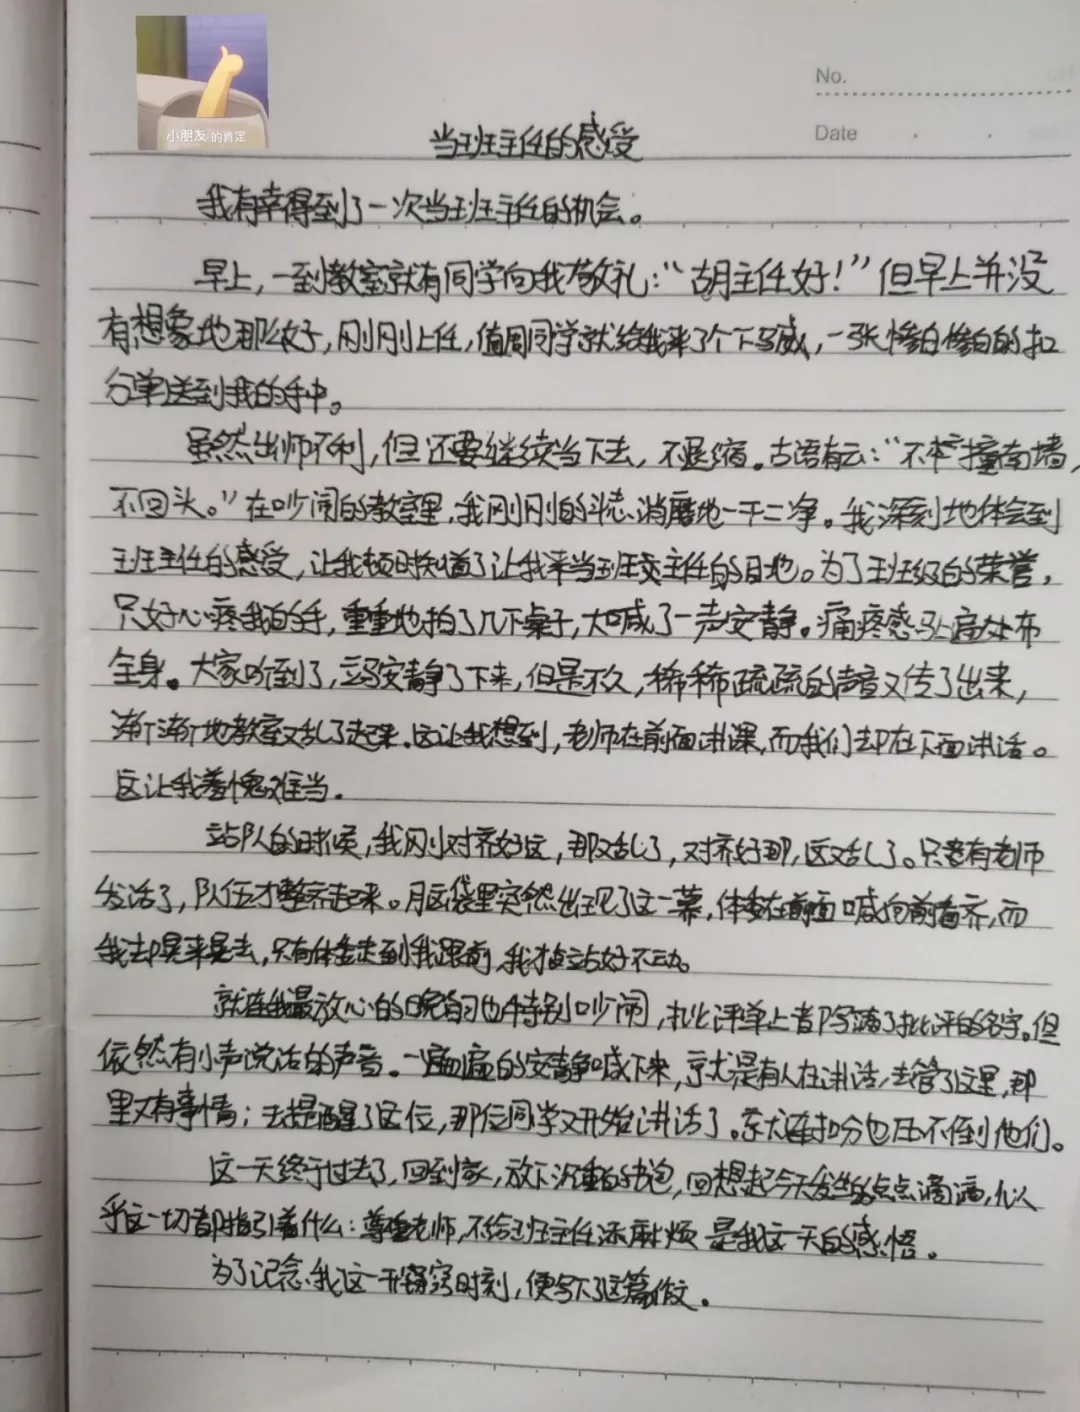 小朋友 的肯定
No.
Date
当班主任的感受
我有幸得到了一次当班主任的机会。
早上，一到教室就有同学向我敬礼：“胡主任好！”但早上并没
有想象地那么好，刚刚上任，值周同学就给我来了个下马威，一张惨白惨白的扣
分单送到我的手中。
虽然出师不利，但还要继续当下去，不退缩。古语有云：“不撞南墙，
不回头。”在吵闹的教室里，我刚刚的斗志消磨地一干二净。我深刻地体会到
班主任的感受，让我顿时知道了让我来当班主任的目地。为了班级的荣誉，
只好心疼我的手，重重地拍了几下桌子，大喊了一声安静。痛疼感马上遍处布
全身。大家听到了，立马安静了下来，但是不久，稀稀疏疏的声音又传了出来，
渐渐地教室又乱了起来。这让我想到，老师在前面讲课，而我们却在下面讲话。
这让我羞愧难当。
站队的时候，我刚对齐好这，那又乱了，对齐好那，这又乱了。只有老师
发话了，队伍才整齐起来。脑袋里突然出现了这一幕，体委在前面喊向前看齐，而
我却晃来晃去，只有体委走到我跟前，我才站好不动。
就连我最放心的晚自习也特别吵闹，批评单上都写满了批评的名字。但
依然有小声说话的声音。一遍遍的安静喊下来，就是有人在讲话，去管了这里，那
里又有事情；去提醒了这位，那位同学又开始讲话了。就连扣分也压不倒他们。
这一天终于过去了，回到家，放下沉重的书包，回想起今天发生的点点滴滴，似
乎这一切都指引着什么：尊重老师，不给班主任添麻烦 是我这一天的感悟。
为了记念我这一开窍时刻，便写下了这篇作文。